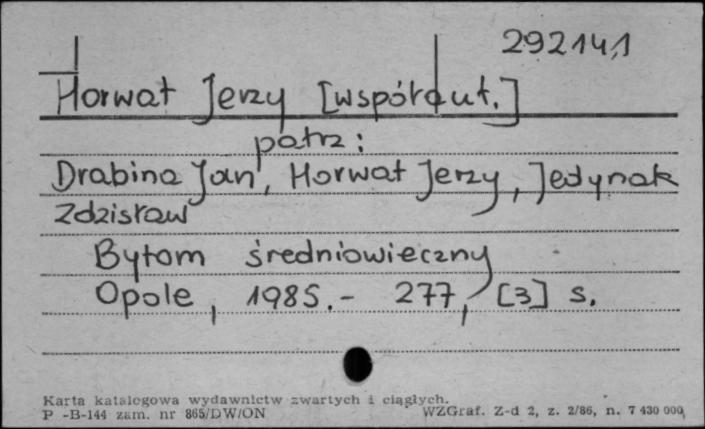 292141
Horwat Jerzy [współaut.]
patrz:
Drabina Jan, Horwat Jerzy, Jedynak
Zdzisław
Bytom średniowieczny
Opole, 1985.- 277, [3] s.
Karta katalogowa wydawnictw zwartych i ciągłych.
P -B-144 zam. nr 865/DW/ON WZGraf. Z-d 2, z. 2/86, n. 7 430 000